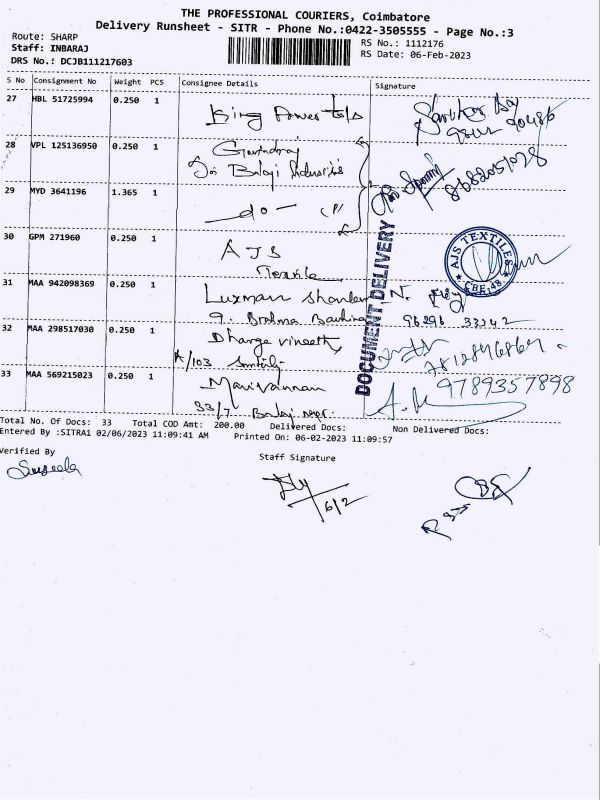 THE PROFESSIONAL COURIERS, Coimbatore
Delivery Runsheet - SITR - Phone No.:0422-3505555 - Page No.:3
Route: SHARP
RS No.: 1112176
Staff: INBARAJ
RS Date: 06-Feb-2023
DRS No.: DCJB111217603
S No Consignment No Weight PCS Consignee Details Signature
27 HBL 51725994 0.250 1 King Power
28 VPL 125136950 0.250 1 Govindraj
Sri Balaji Industries
8682051028
29 MYD 3641196 1.365 1 - do -
DOCUMENT DELIVERY
30 GPM 271960 0.250 1 AJS
Textile
AJS TEXTILES
CBE-48
31 MAA 942098369 0.250 1 Luxman Shankar N.
9. Brahma
32 MAA 298517030 0.250 1 Dharge vineeth
A/103
33 MAA 569215023 0.250 1 Marivannan 9789357898
33/7 Balaji nagar
Total No. Of Docs: 33 Total COD Amt: 200.00 Delivered Docs: Non Delivered Docs:
Entered By :SITRA1 02/06/2023 11:09:41 AM Printed On: 06-02-2023 11:09:57
Verified By
Staff Signature
Suseela
6/2